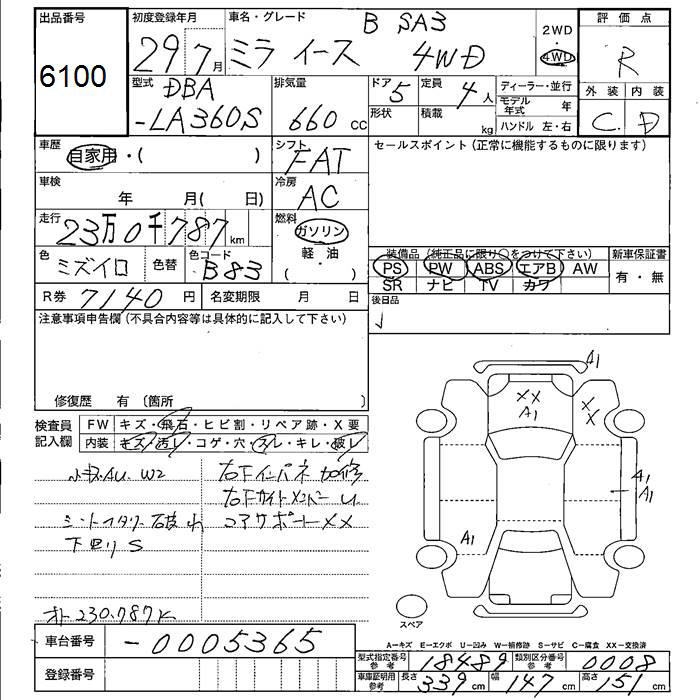 出品番号
6100
初度登録年月
29年 7月
車名・グレード
B SA3
ミラ イース 4WD
2WD
・
4WD
評価点
R
外装 内装
C D
型式
DBA
-LA360S
排気量
660 cc
ドア 5
定員 4人
形状
積載 kg
ディーラー・並行
モデル年式 年
ハンドル 左・右
車歴
自家用・( )
シフト
FAT
セールスポイント(正常に機能するものに限ります)
車検
年 月( 日)
冷房
AC
走行
23万0千787km
燃料
ガソリン
・
軽・油
( )
色
ミズイロ
色替
色コード
B83
装備品(純正品に限り○をつけて下さい)
PS PW ABS エアB AW
SR ナビ TV カワ
新車保証書
有・無
R券 7140円
名変期限 月 日
後日品
注意事項申告欄(不具合内容等は具体的に記入して下さい)
修復歴 有(箇所 )
検査員記入欄
FW キズ・飛石・ヒビ割・リペア跡・X要
内装 キズ・汚レ・コゲ・穴・スレ・キレ・破レ
小キズAU. W2
下廻りS
コアサポートXX
オト 230.787K
A1
XX
A1
XX
A1
A1
A1
スペア
車台番号 -0005365
登録番号
A-キズ E-エクボ U-凹み W-補修跡 S-サビ C-腐食 XX-交換済
型式指定番号 参考 18489
類別区分番号 参考 0008
車庫証明用 参考 長さ 339cm 幅 147cm 高さ 151cm